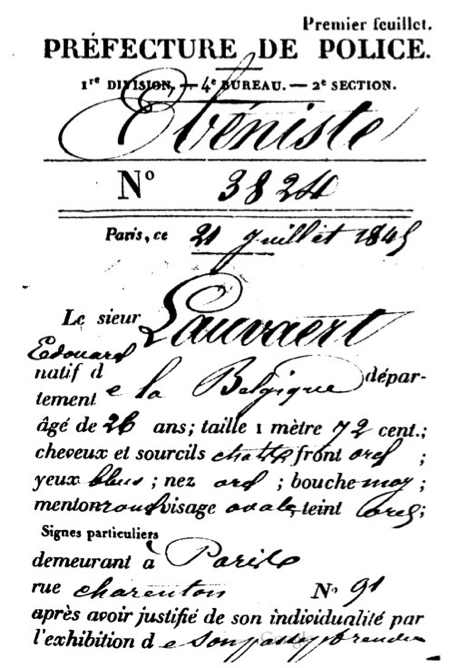 Premier feuillet.
PRÉFECTURE DE POLICE.
1re DIVISION. — 4e BUREAU. — 2e SECTION.
Ebéniste
No 3824
Paris, ce 21 Juillet 1845
Le sieur Lauvaert
Edouard
natif de la Belgique dépar-
tement
âgé de 26 ans; taille 1 mètre 72 cent.;
cheveux et sourcils chatts front ord ;
yeux bleus ; nez ord ; bouche moy ;
menton rond visage ovale, teint ord;
Signes particuliers
demeurant à Paris
rue charenton No 91
après avoir justifié de son individualité par
l'exhibition de son